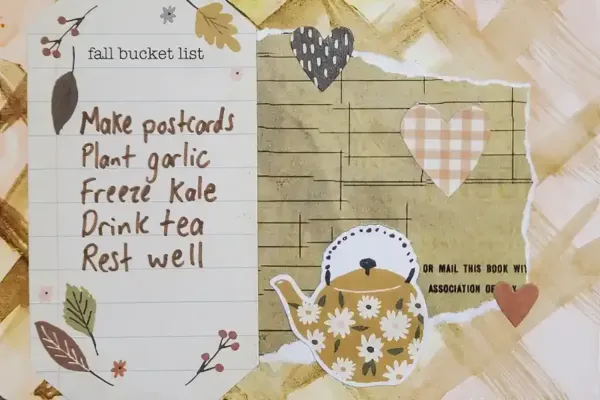 fall bucket list
Make postcards
Plant garlic
Freeze Kale
Drink tea
Rest well
OR MAIL THIS BOOK
ASSOCIATION